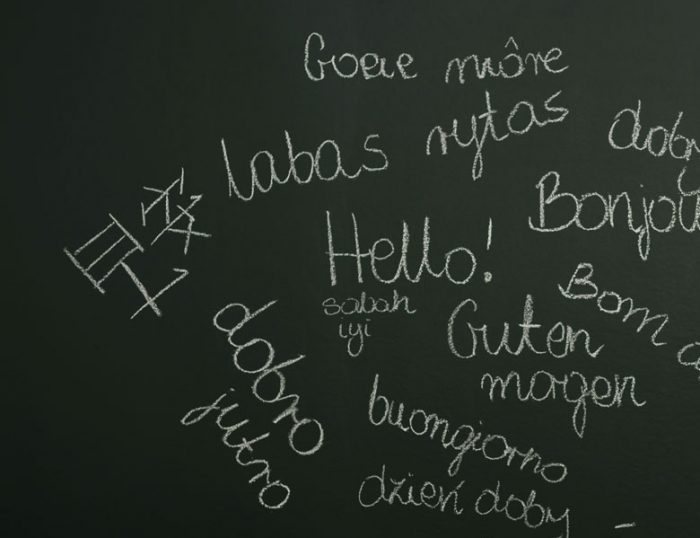 Goeie môre
labas rytas
dobr
早安
Bonjou
Hello!
sabah
iyi
Bom d
Guten
morgen
dobro
jutro
buongiorno
dzień doby